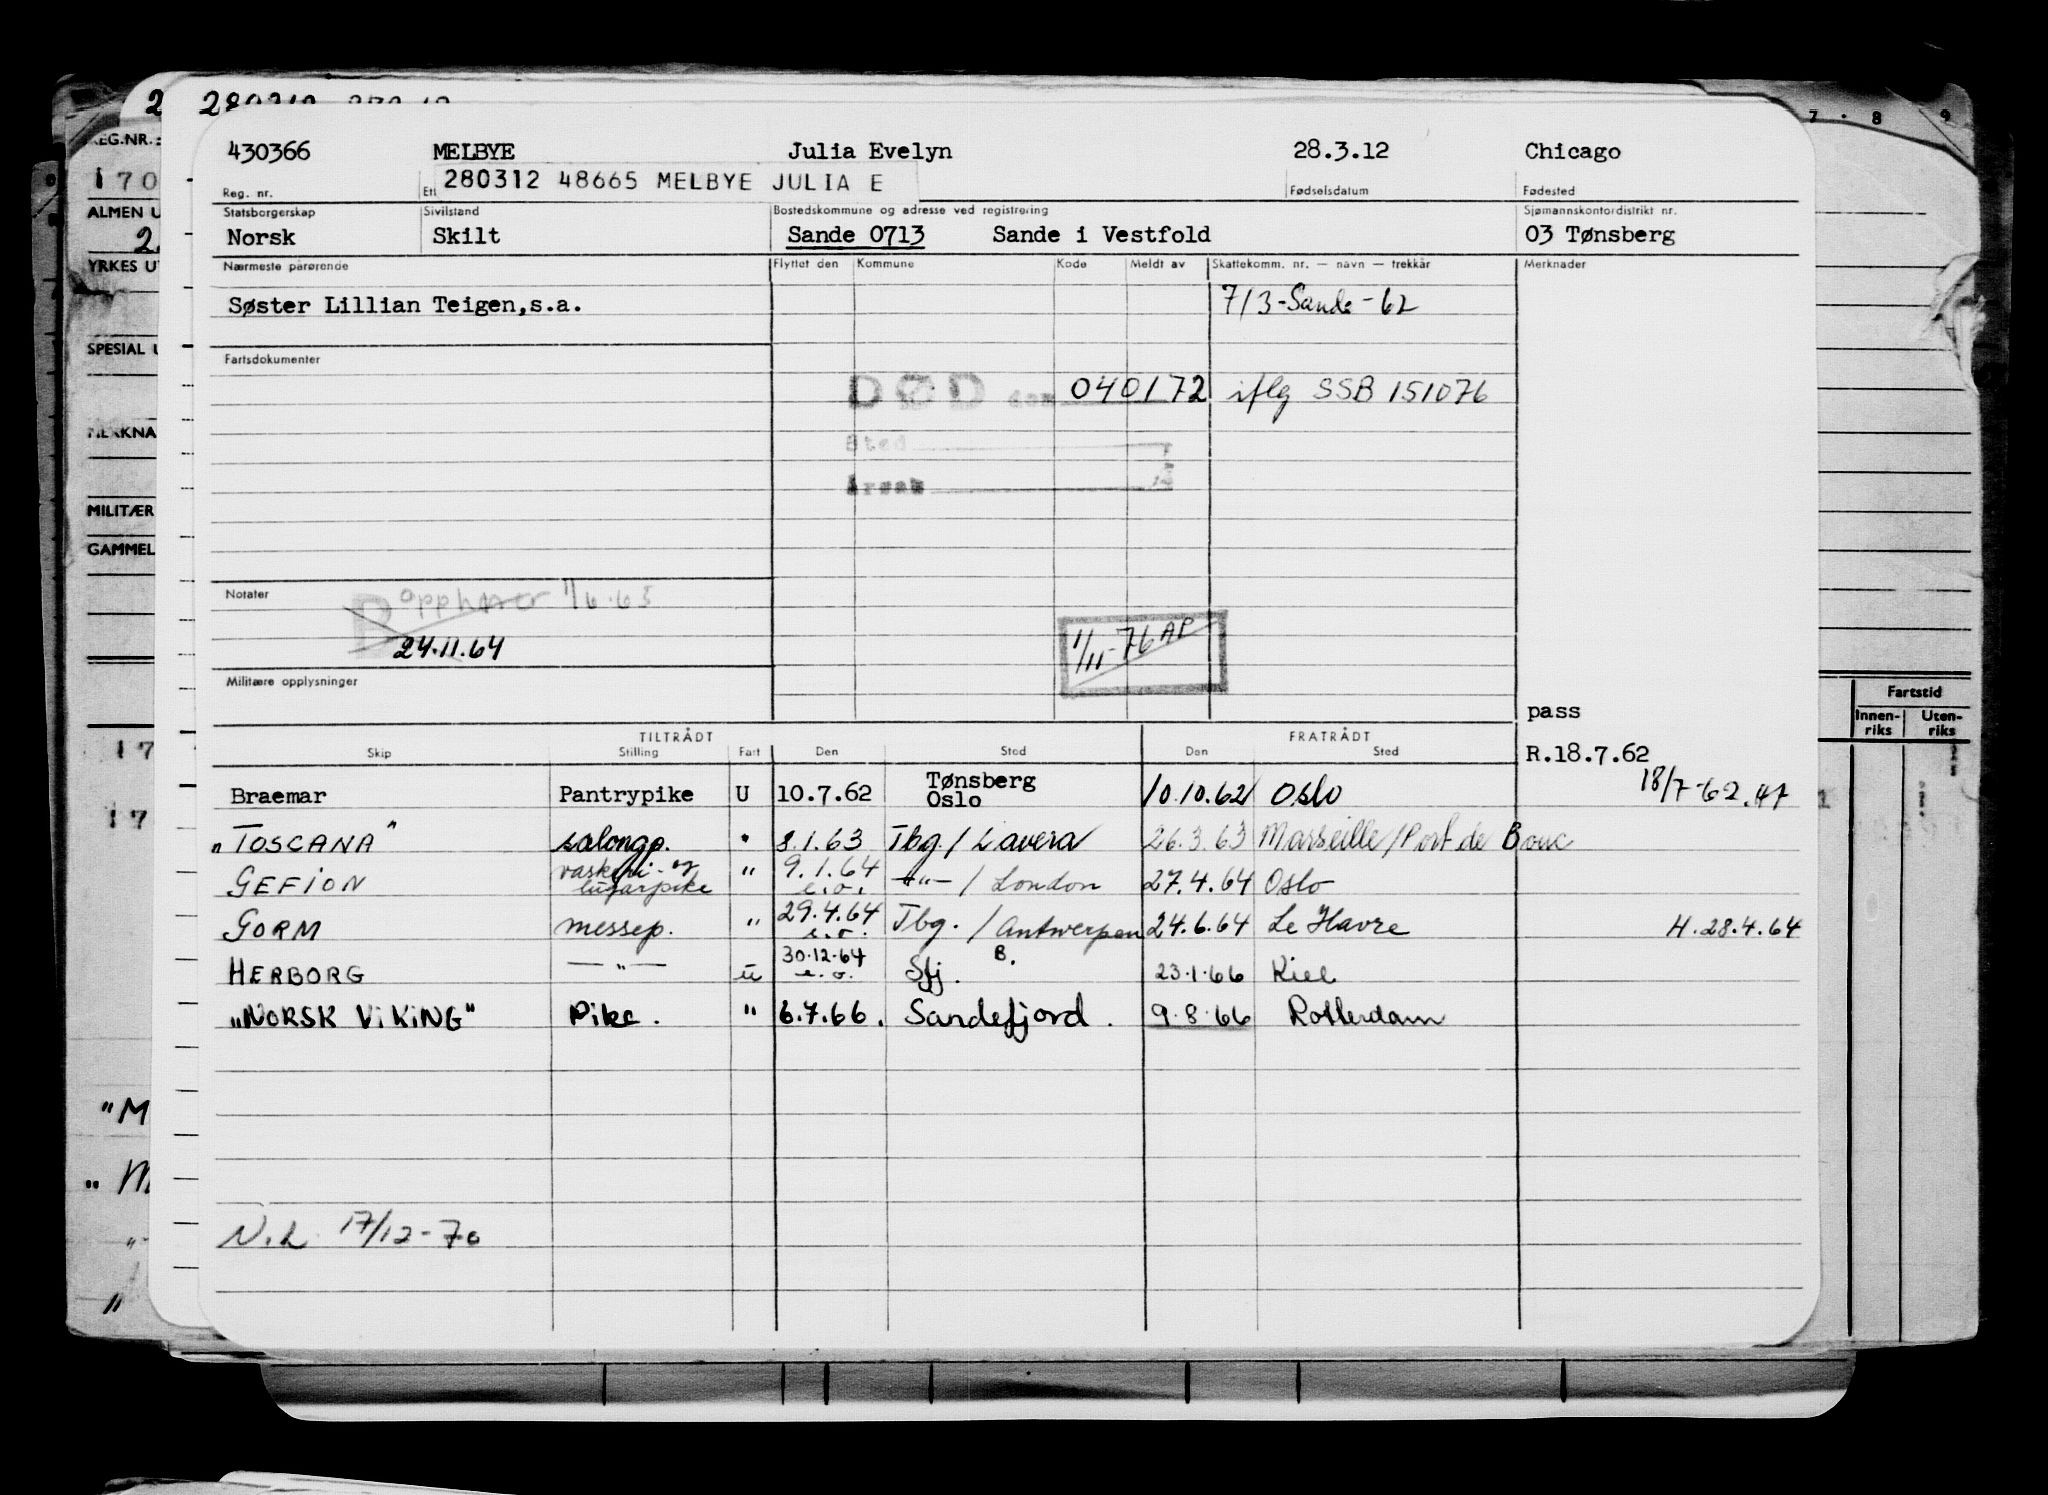 280312
430366 MELBYE Julia Evelyn 28.3.12 Chicago
280312 48665 MELBYE JULIA E
Reg. nr. Fødselsdatum Fødested
Statsborgerskap Sivilstand Bostedskommune og adresse ved registrering Sjømannskontordistrikt nr.
Norsk Skilt Sande 0713 Sande i Vestfold 03 Tønsberg
Nærmeste pårørende Flyttet den Kommune Kode Meldt av Skattekomm. nr. — navn — trekkår Merknader
Søster Lillian Teigen,s.a. 713-Sande-62
Fartsdokumenter
DØD den 040172 iflg SSB 151076
Sted
Årsak
Notater opphører 1/6.65
24.11.64
1/11-76 AP
Militære opplysninger
pass
TILTRÅDT FRATRÅDT
Skip Stilling Fart Den Sted Den Sted
R.18.7.62
18/7-62.
Braemar Pantrypike U 10.7.62 Tønsberg
Oslo 10.10.62 Oslo
"TOSCANA" salongp. " 8.1.63 Tbg./Lavera 26.3.63 Marseille/Port de Bouc
GEFION vaskeri- og
lugarpike " 9.1.64
e.o. —"—/London 27.4.64 Oslo
GORM messep. " 29.4.64
e.o. Tbg./Antwerpen 24.6.64 Le Havre H.28.4.64
HERBORG —"— u 30.12.64
e.o. Sfj. B. 23.1.66 Kiel
"NORSK ViKiNG" Pike. " 6.7.66. Sandefjord. 9.8.66 Rotterdam
N.L. 17/12-70
REG.NR.
170
ALMEN
SPESIAL
MILITÆR
GAMMEL
17
17
7 8 9
Fartstid
Innen-
riks
Uten-
riks